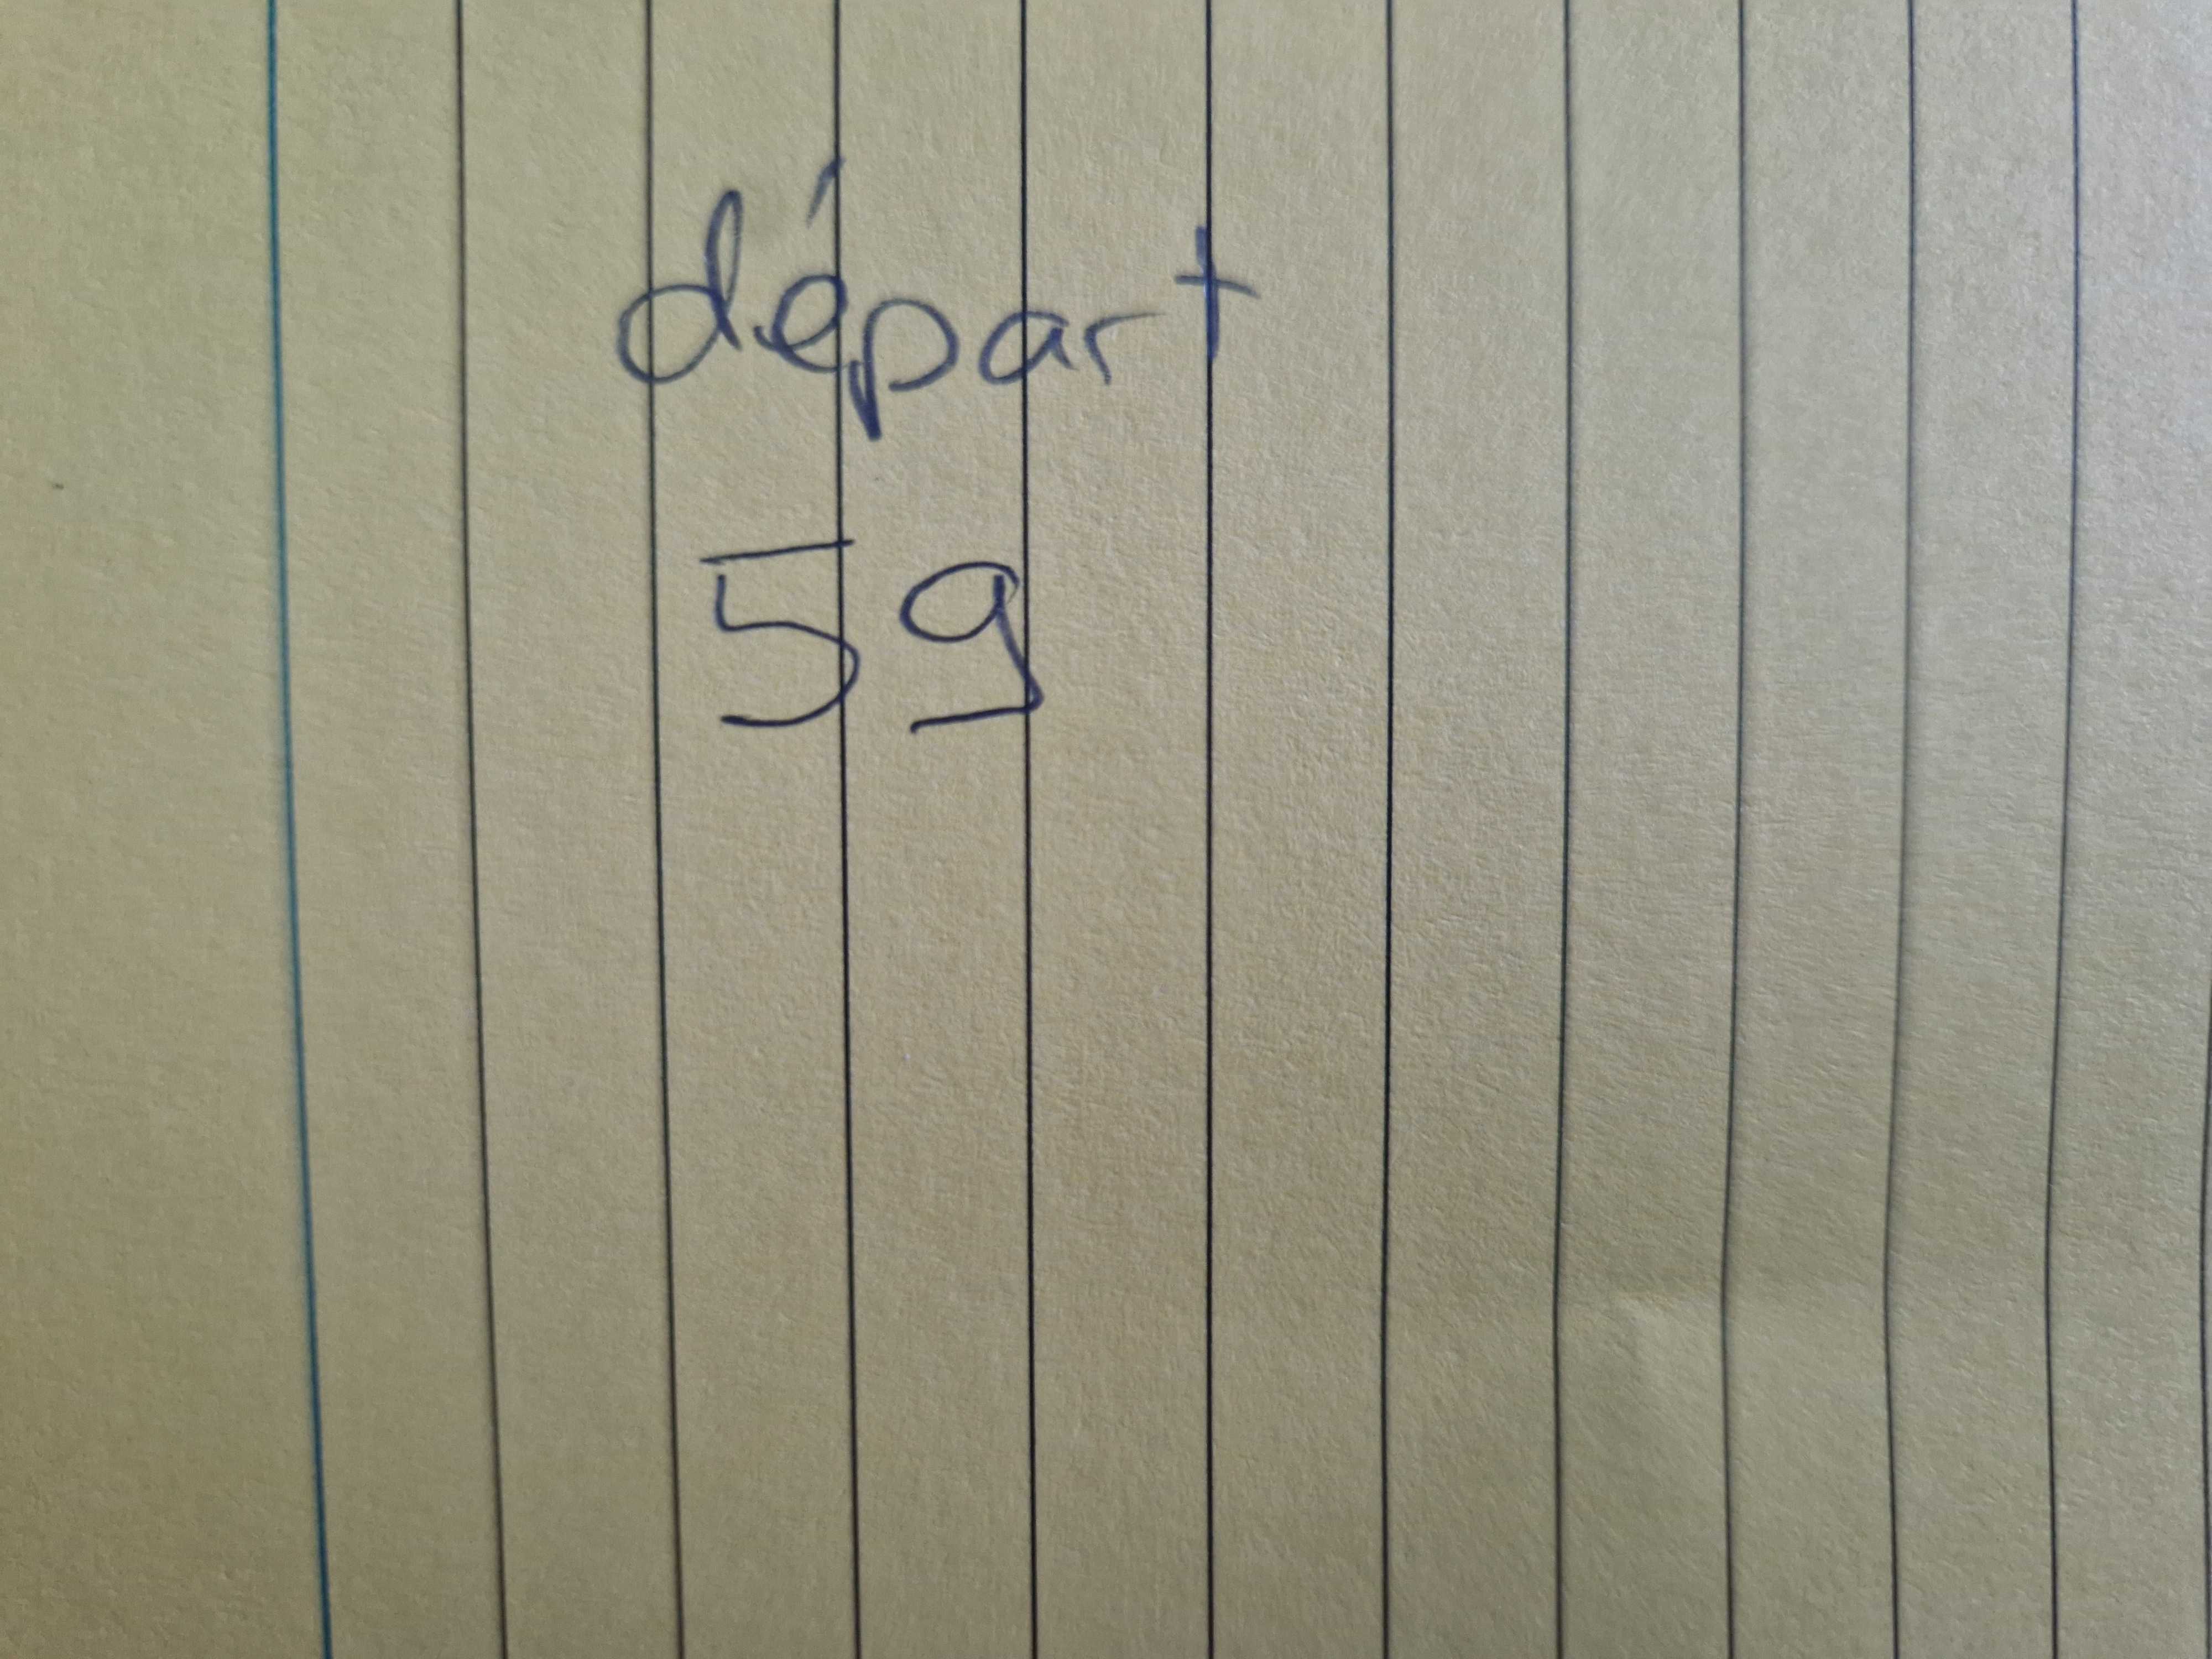 départ
59